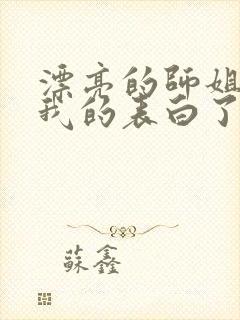 漂亮的師姐
我的表白了
蘇鑫